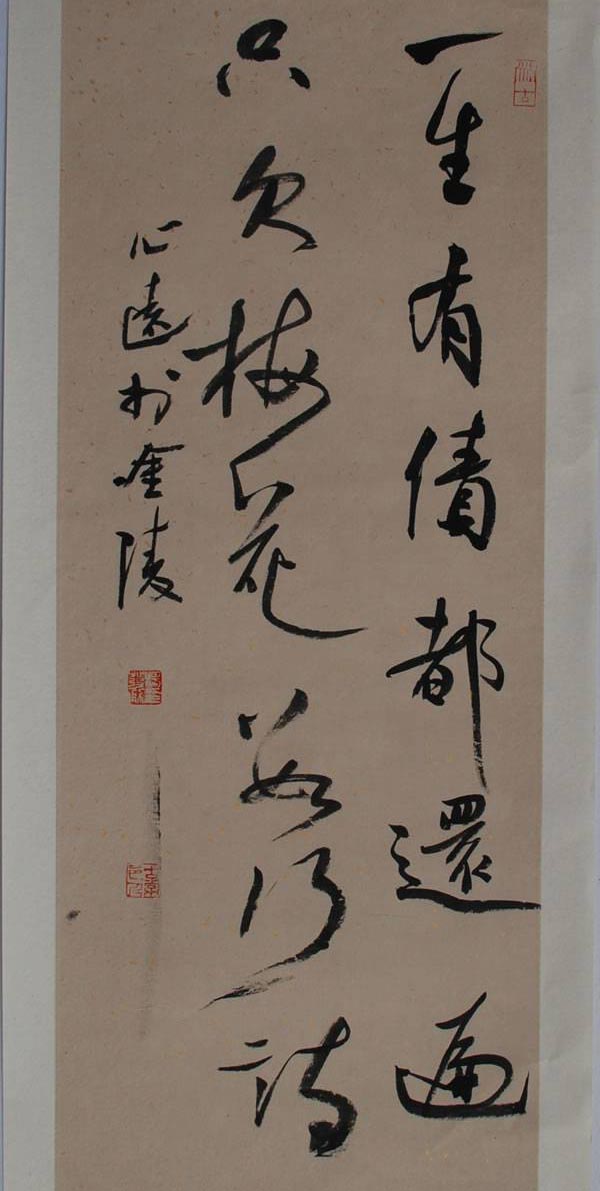 一生有債都還遍
只欠梅花數行詩
心遠於金陵